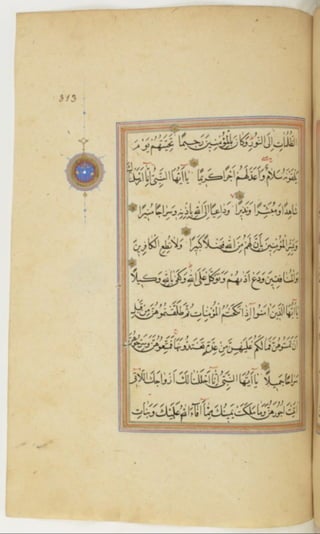 313
الظُّلُمَاتِ إِلَى النُّورِ وَكَانَ بِالْمُؤْمِنِينَ رَحِيمًا تَحِيَّتُهُمْ يَوْمَ
يَلْقَوْنَهُ سَلَامٌ وَأَعَدَّ لَهُمْ أَجْرًا كَرِيمًا يَا أَيُّهَا النَّبِيُّ إِنَّا أَرْسَلْنَاكَ
شَاهِدًا وَمُبَشِّرًا وَنَذِيرًا وَدَاعِيًا إِلَى اللَّهِ بِإِذْنِهِ وَسِرَاجًا مُنِيرًا
وَبَشِّرِ الْمُؤْمِنِينَ بِأَنَّ لَهُمْ مِنَ اللَّهِ فَضْلًا كَبِيرًا وَلَا تُطِعِ الْكَافِرِينَ
وَالْمُنَافِقِينَ وَدَعْ أَذَاهُمْ وَتَوَكَّلْ عَلَى اللَّهِ وَكَفَى بِاللَّهِ وَكِيلًا
يَا أَيُّهَا الَّذِينَ آمَنُوا إِذَا نَكَحْتُمُ الْمُؤْمِنَاتِ ثُمَّ طَلَّقْتُمُوهُنَّ مِنْ قَبْلِ
أَنْ تَمَسُّوهُنَّ فَمَا لَكُمْ عَلَيْهِنَّ مِنْ عِدَّةٍ تَعْتَدُّونَهَا فَمَتِّعُوهُنَّ وَسَرِّحُوهُنَّ
سَرَاحًا جَمِيلًا يَا أَيُّهَا النَّبِيُّ إِنَّا أَحْلَلْنَا لَكَ أَزْوَاجَكَ اللَّاتِي
آتَيْتَ أُجُورَهُنَّ وَمَا مَلَكَتْ يَمِينُكَ مِمَّا أَفَاءَ اللَّهُ عَلَيْكَ وَبَنَاتِ